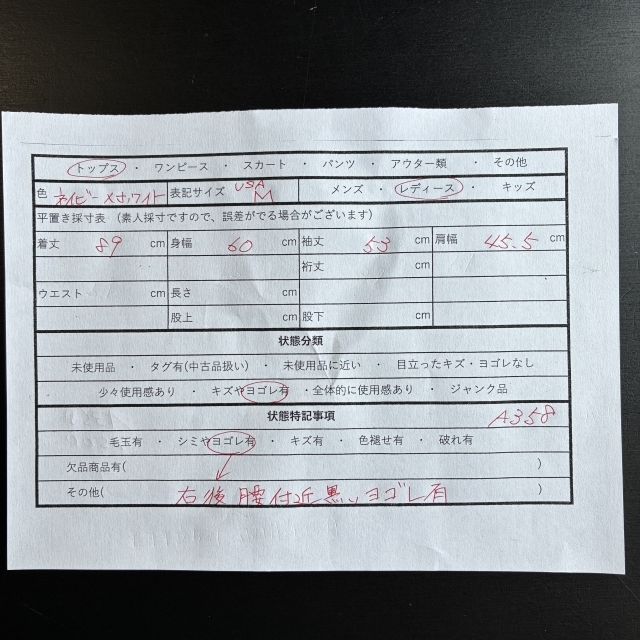 トップス ・ ワンピース ・ スカート ・ パンツ ・ アウター類 ・ その他
色 ネイビー×ホワイト 表記サイズ USA M メンズ ・ レディース ・ キッズ
平置き採寸表 （素人採寸ですので、誤差がでる場合がございます）
着丈 89 cm 身幅 60 cm 袖丈 53 cm 肩幅 45.5 cm
cm 裄丈 cm
ウエスト cm 長さ cm
股上 cm 股下 cm
状態分類
未使用品 ・ タグ有(中古品扱い) ・ 未使用品に近い ・ 目立ったキズ・ヨゴレなし
少々使用感あり ・ キズやヨゴレ有 ・全体的に使用感あり ・ ジャンク品
状態特記事項 A358
毛玉有 ・ シミやヨゴレ有 ・ キズ有 ・ 色褪せ有 ・ 破れ有
欠品商品有( )
その他( 右後腰付近黒いヨゴレ有 )